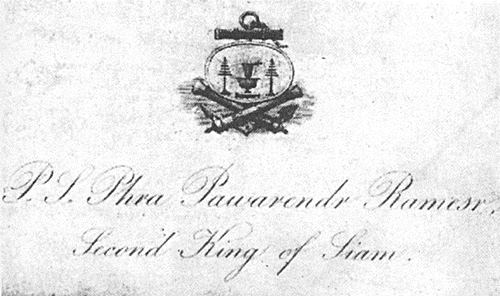 P. S. Phra Pawarendr Ramesr.
Second King of Siam.